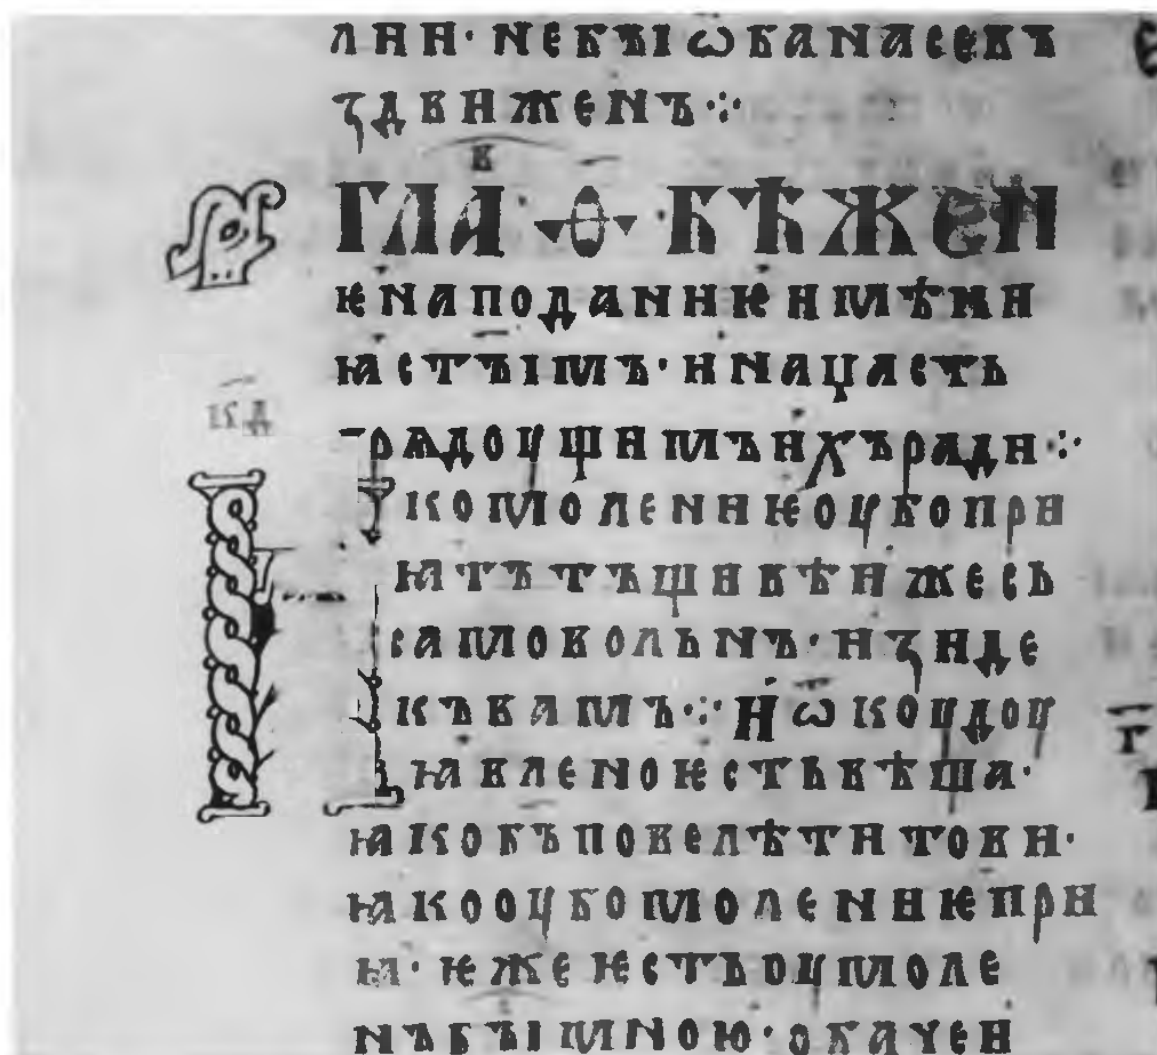 лии· не бꙑ ѡбанасе въ
здвиженъ·:·
в҃
гла ·ѳ· бѣжен
ѥ на подание имѣни
ꙗ стъімъ· и на часть
грѧдоущимъ ихъ ради·:·
к҃д
Ꙗко молениѥ оубо при
ꙗтъ тъщивѣи же сь
самоволънъ· изиде
къ вамъ·:· И ѿкоудоу
ꙗвлено ѥсть вѣша·
ꙗко бъ повелѣ титови·
ꙗко оубо молениѥ при
ꙗ· ѥже ѥсть оумоле
нъ бъі мною· обаче и